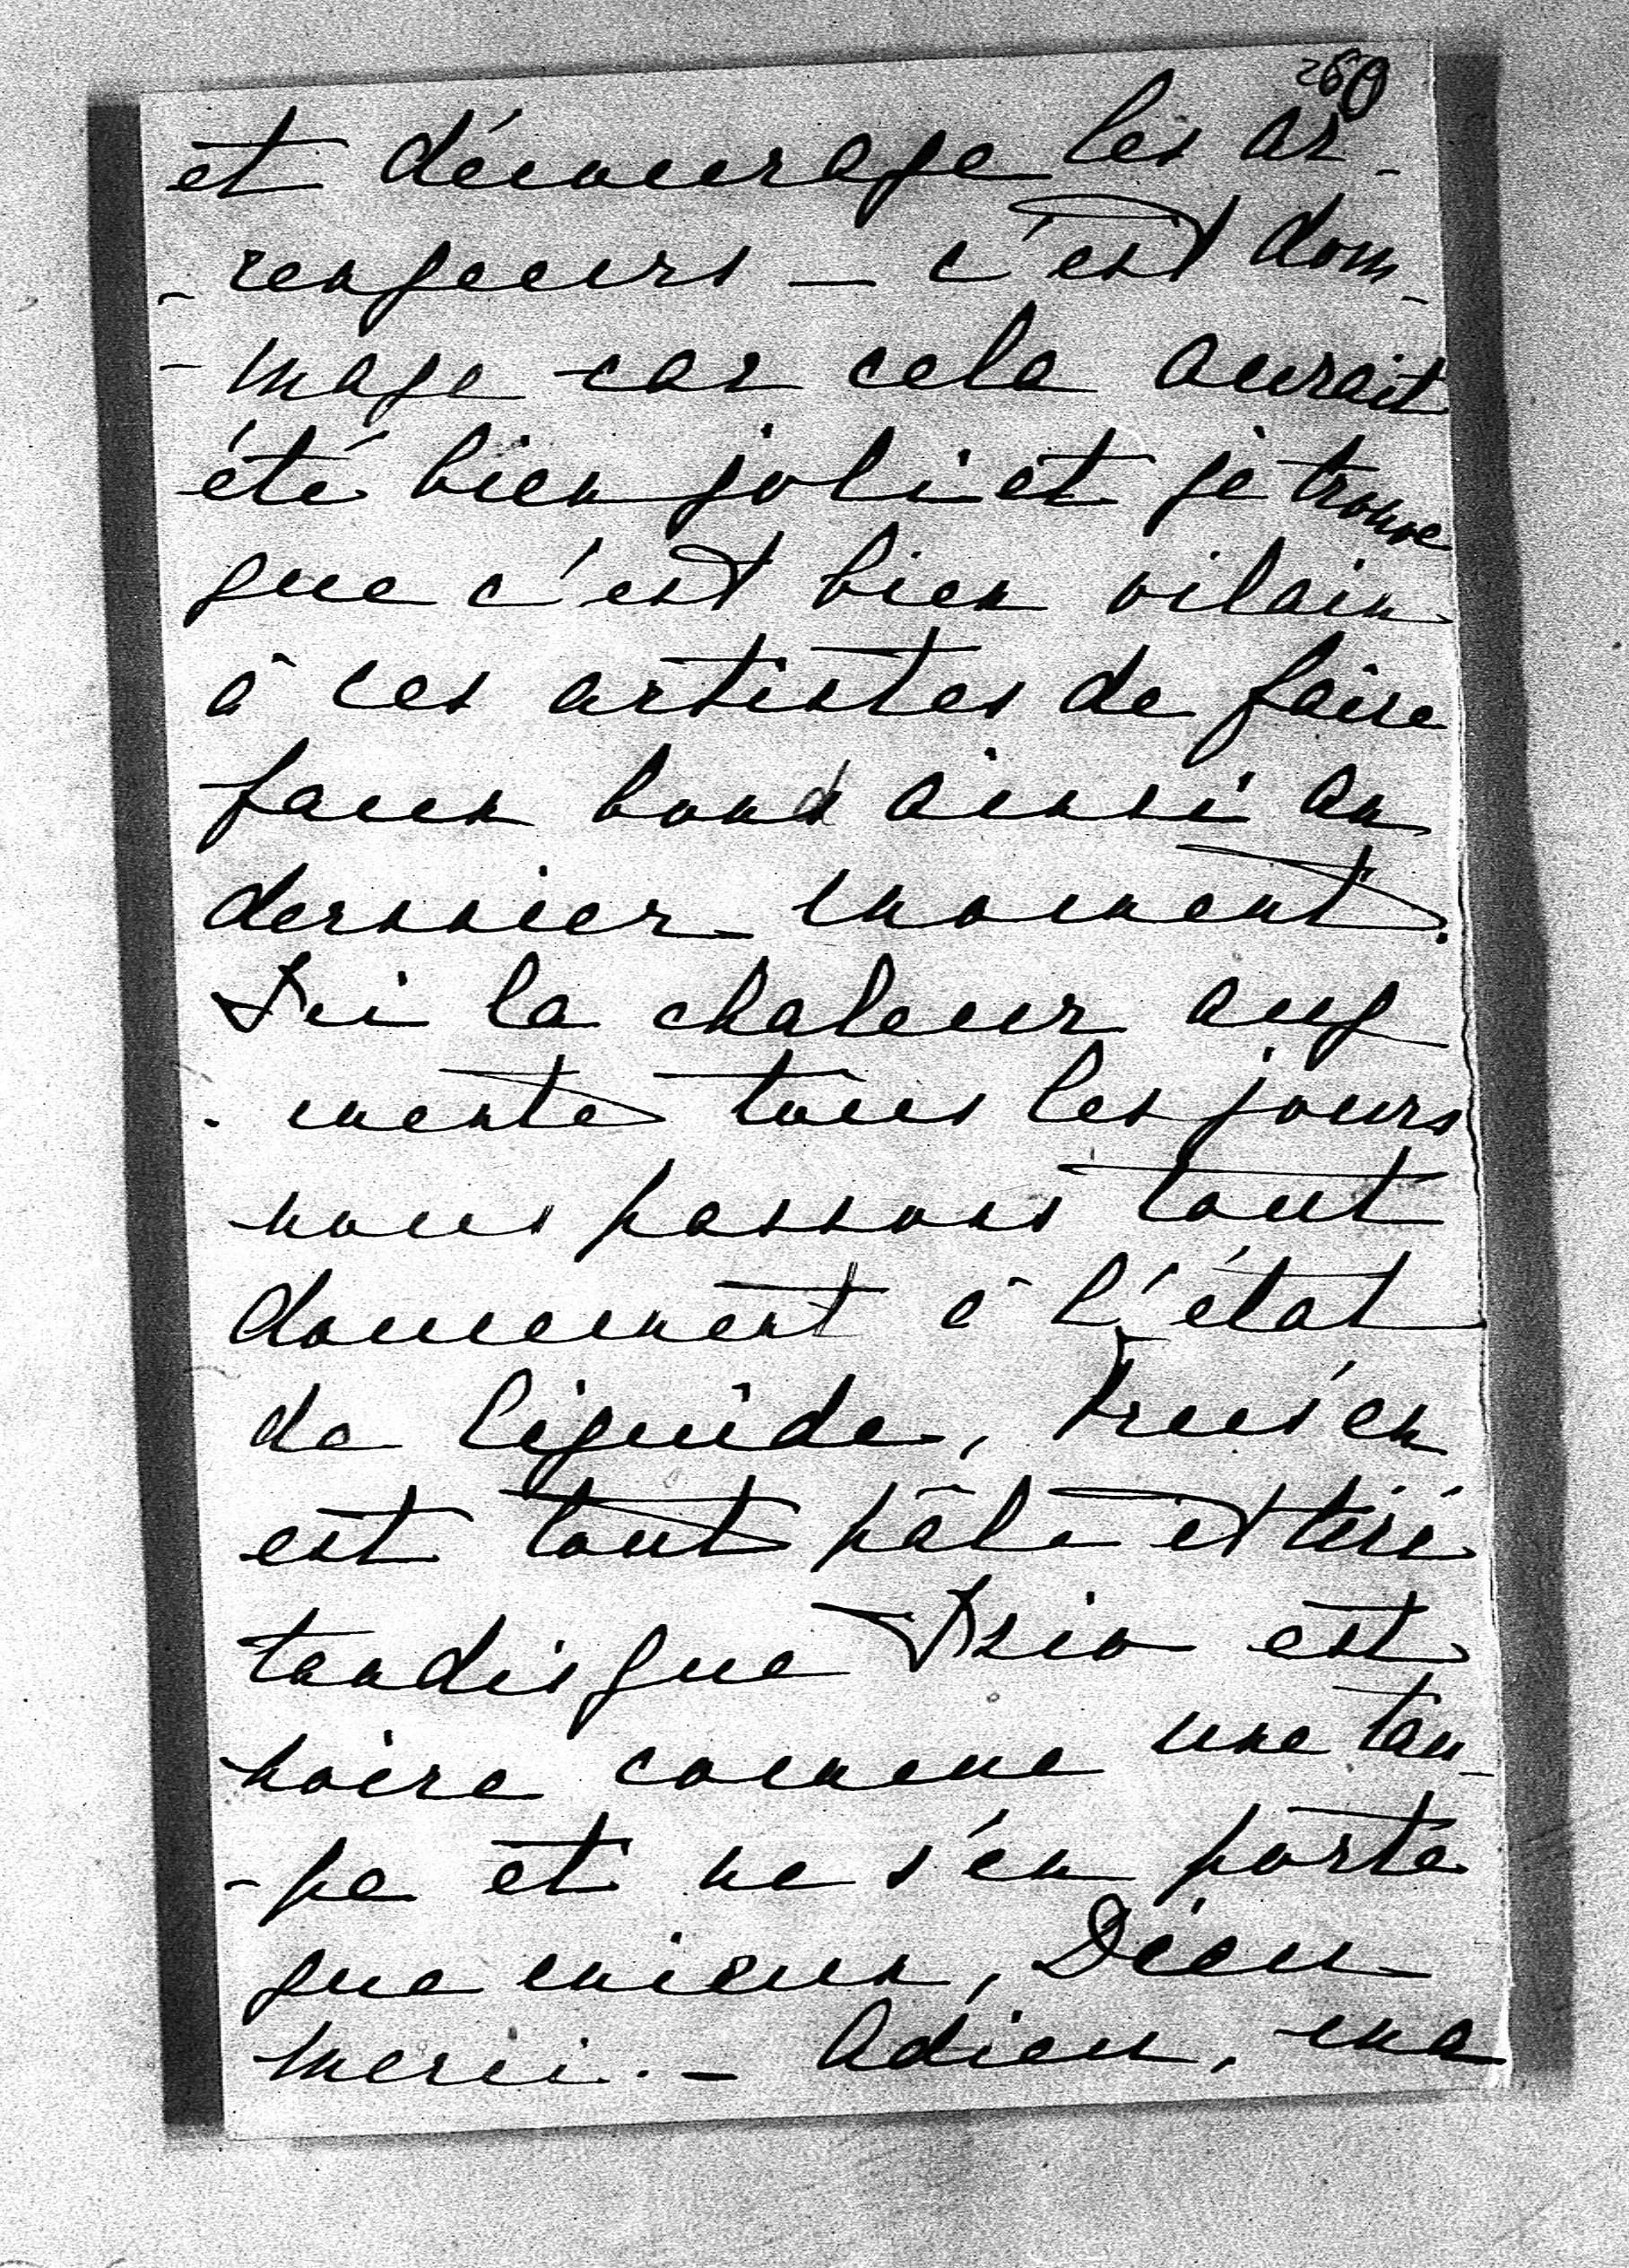 260
et décourage les ar-
-rengeurs - c'est dom-
-mage car cela aurait
été bien joli et je trouve
que c'est bien vilain
à ces artistes de faire
faux bond ainsi au
dernier moment.
Ici la chaleur aug
-mente tous les jours
nous passons tout
doucement à l'état
de liquide, en
est tout pâle et tiré
tandis que est
noire comme une tau-
-pe et ne s'en porte
que mieux, Dieu
merci. - Adieu, ma